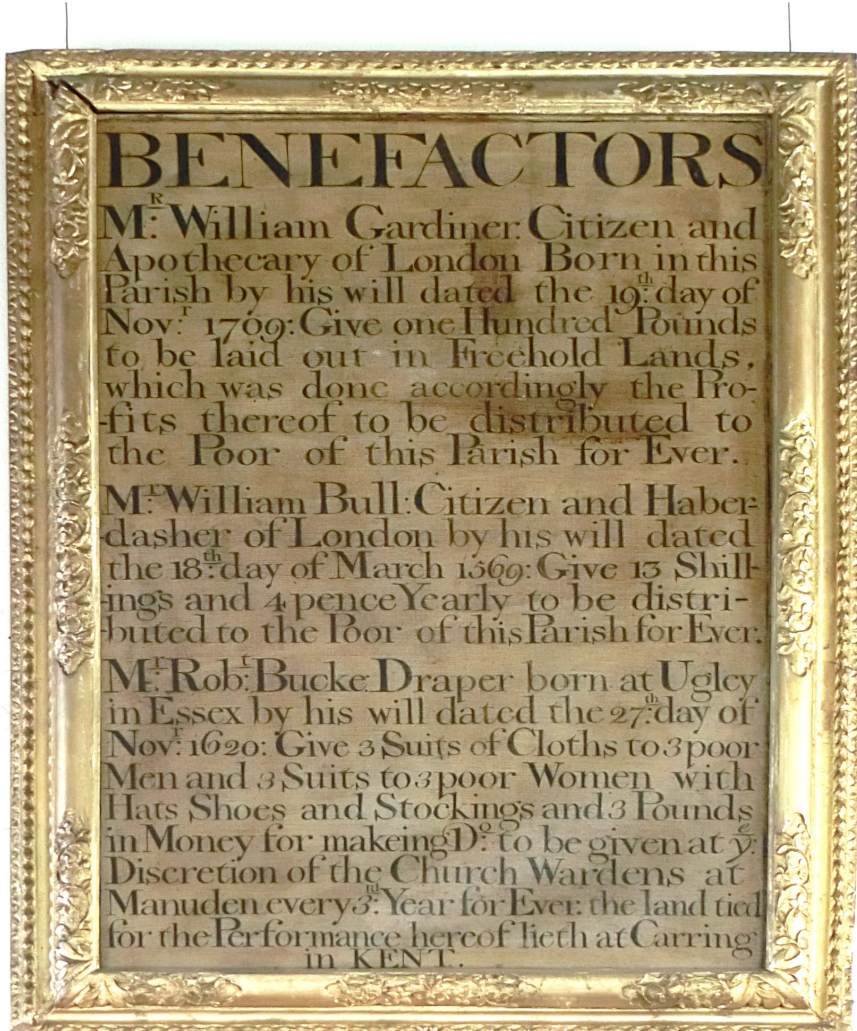 BENEFACTORS
Mr. William Gardiner: Citizen and
Apothecary of London Born in this
Parish by his will dated the 19th. day of
Novr. 1709: Give one Hundred Pounds
to be laid out in Freehold Lands,
which was done accordingly the Pro-
-fits thereof to be distributed to
the Poor of this Parish for Ever.
Mr. William Bull: Citizen and Haber-
-dasher of London by his will dated
the 18th. day of March 1569: Give 13 Shill-
-ings and 4 pence Yearly to be distri-
-buted to the Poor of this Parish for Ever.
Mr. Robt. Bucke Draper born at Ugley
in Essex by his will dated the 27th. day of
Novr. 1620: Give 3 Suits of Cloths to 3 poor
Men and 3 Suits to 3 poor Women with
Hats Shoes and Stockings and 3 Pounds
in Money for makeing Do. to be given at ye.
Discretion of the Church Wardens at
Manuden every 3rd. Year for Ever: the land tied
for the Performance hereof lieth at Carring
in KENT.